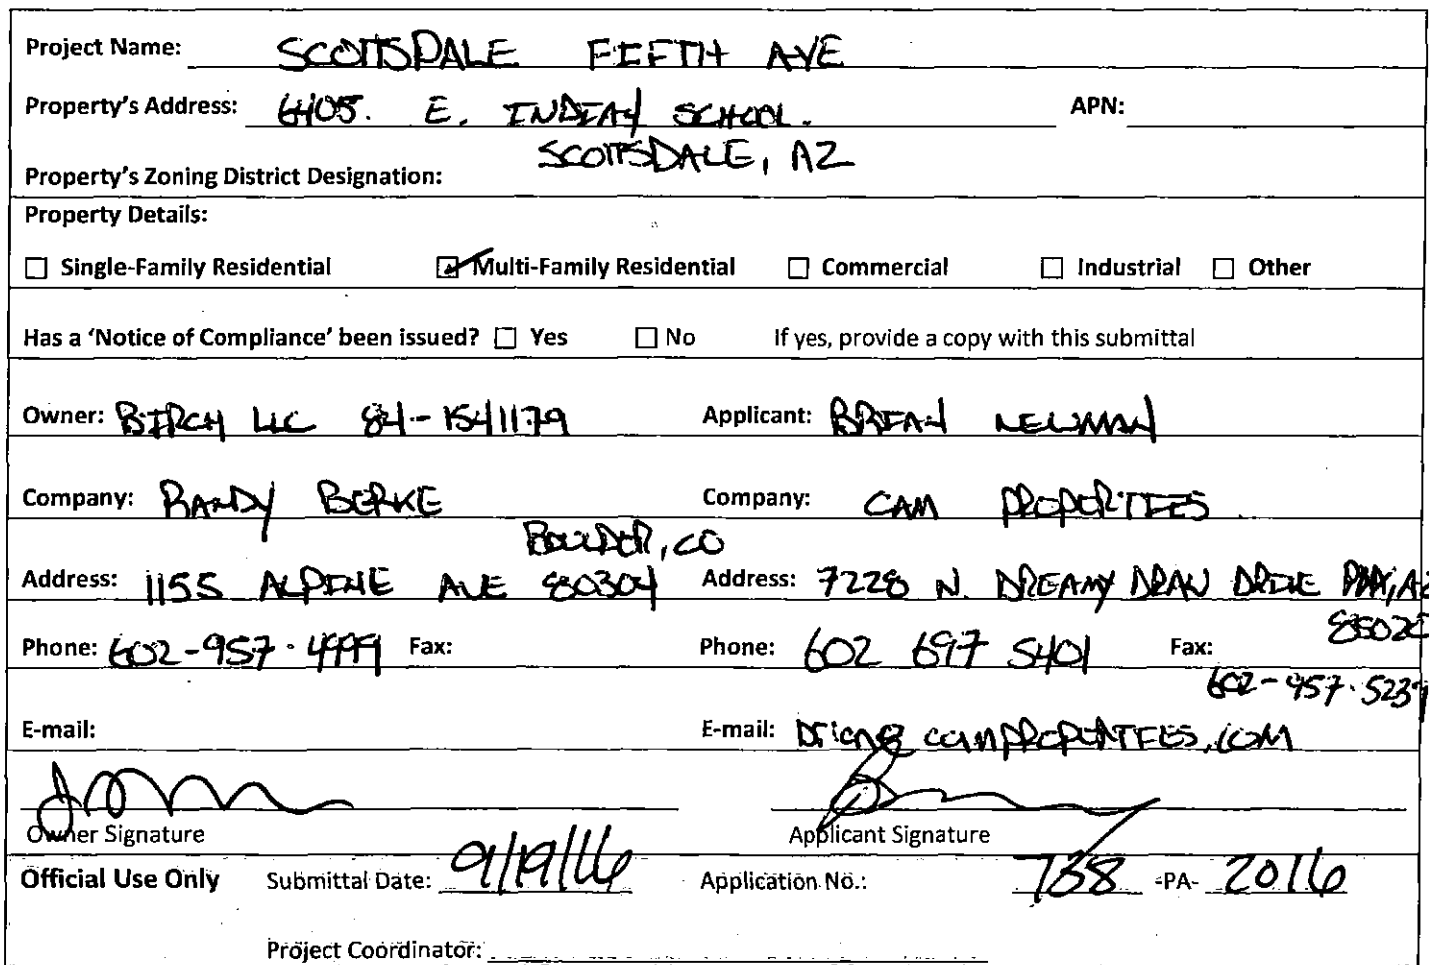 Project Name: SCOTTSDALE FIFTH AVE
Property's Address: 6405. E. INDIAN SCHOOL. APN:
SCOTTSDALE, AZ
Property's Zoning District Designation:
Property Details:
☐ Single-Family Residential ☑ Multi-Family Residential ☐ Commercial ☐ Industrial ☐ Other
Has a 'Notice of Compliance' been issued? ☐ Yes ☐ No If yes, provide a copy with this submittal
Owner: BIRCH LLC 84-1541179 Applicant: BRIAN NEWMAN
Company: RANDY BERKE Company: CAM PROPERTIES
BOULDER, CO
Address: 1155 ALPINE AVE 80304 Address: 7228 N. DREAMY DRAW DRIVE PHX, AZ
85020
Phone: 602-957-4999 Fax: Phone: 602 697 5401 Fax:
602-957-5239
E-mail: E-mail: brian@camproperties.com
Owner Signature Applicant Signature
Official Use Only Submittal Date: 9/19/16 Application No.: 738 -PA- 2016
Project Coordinator: